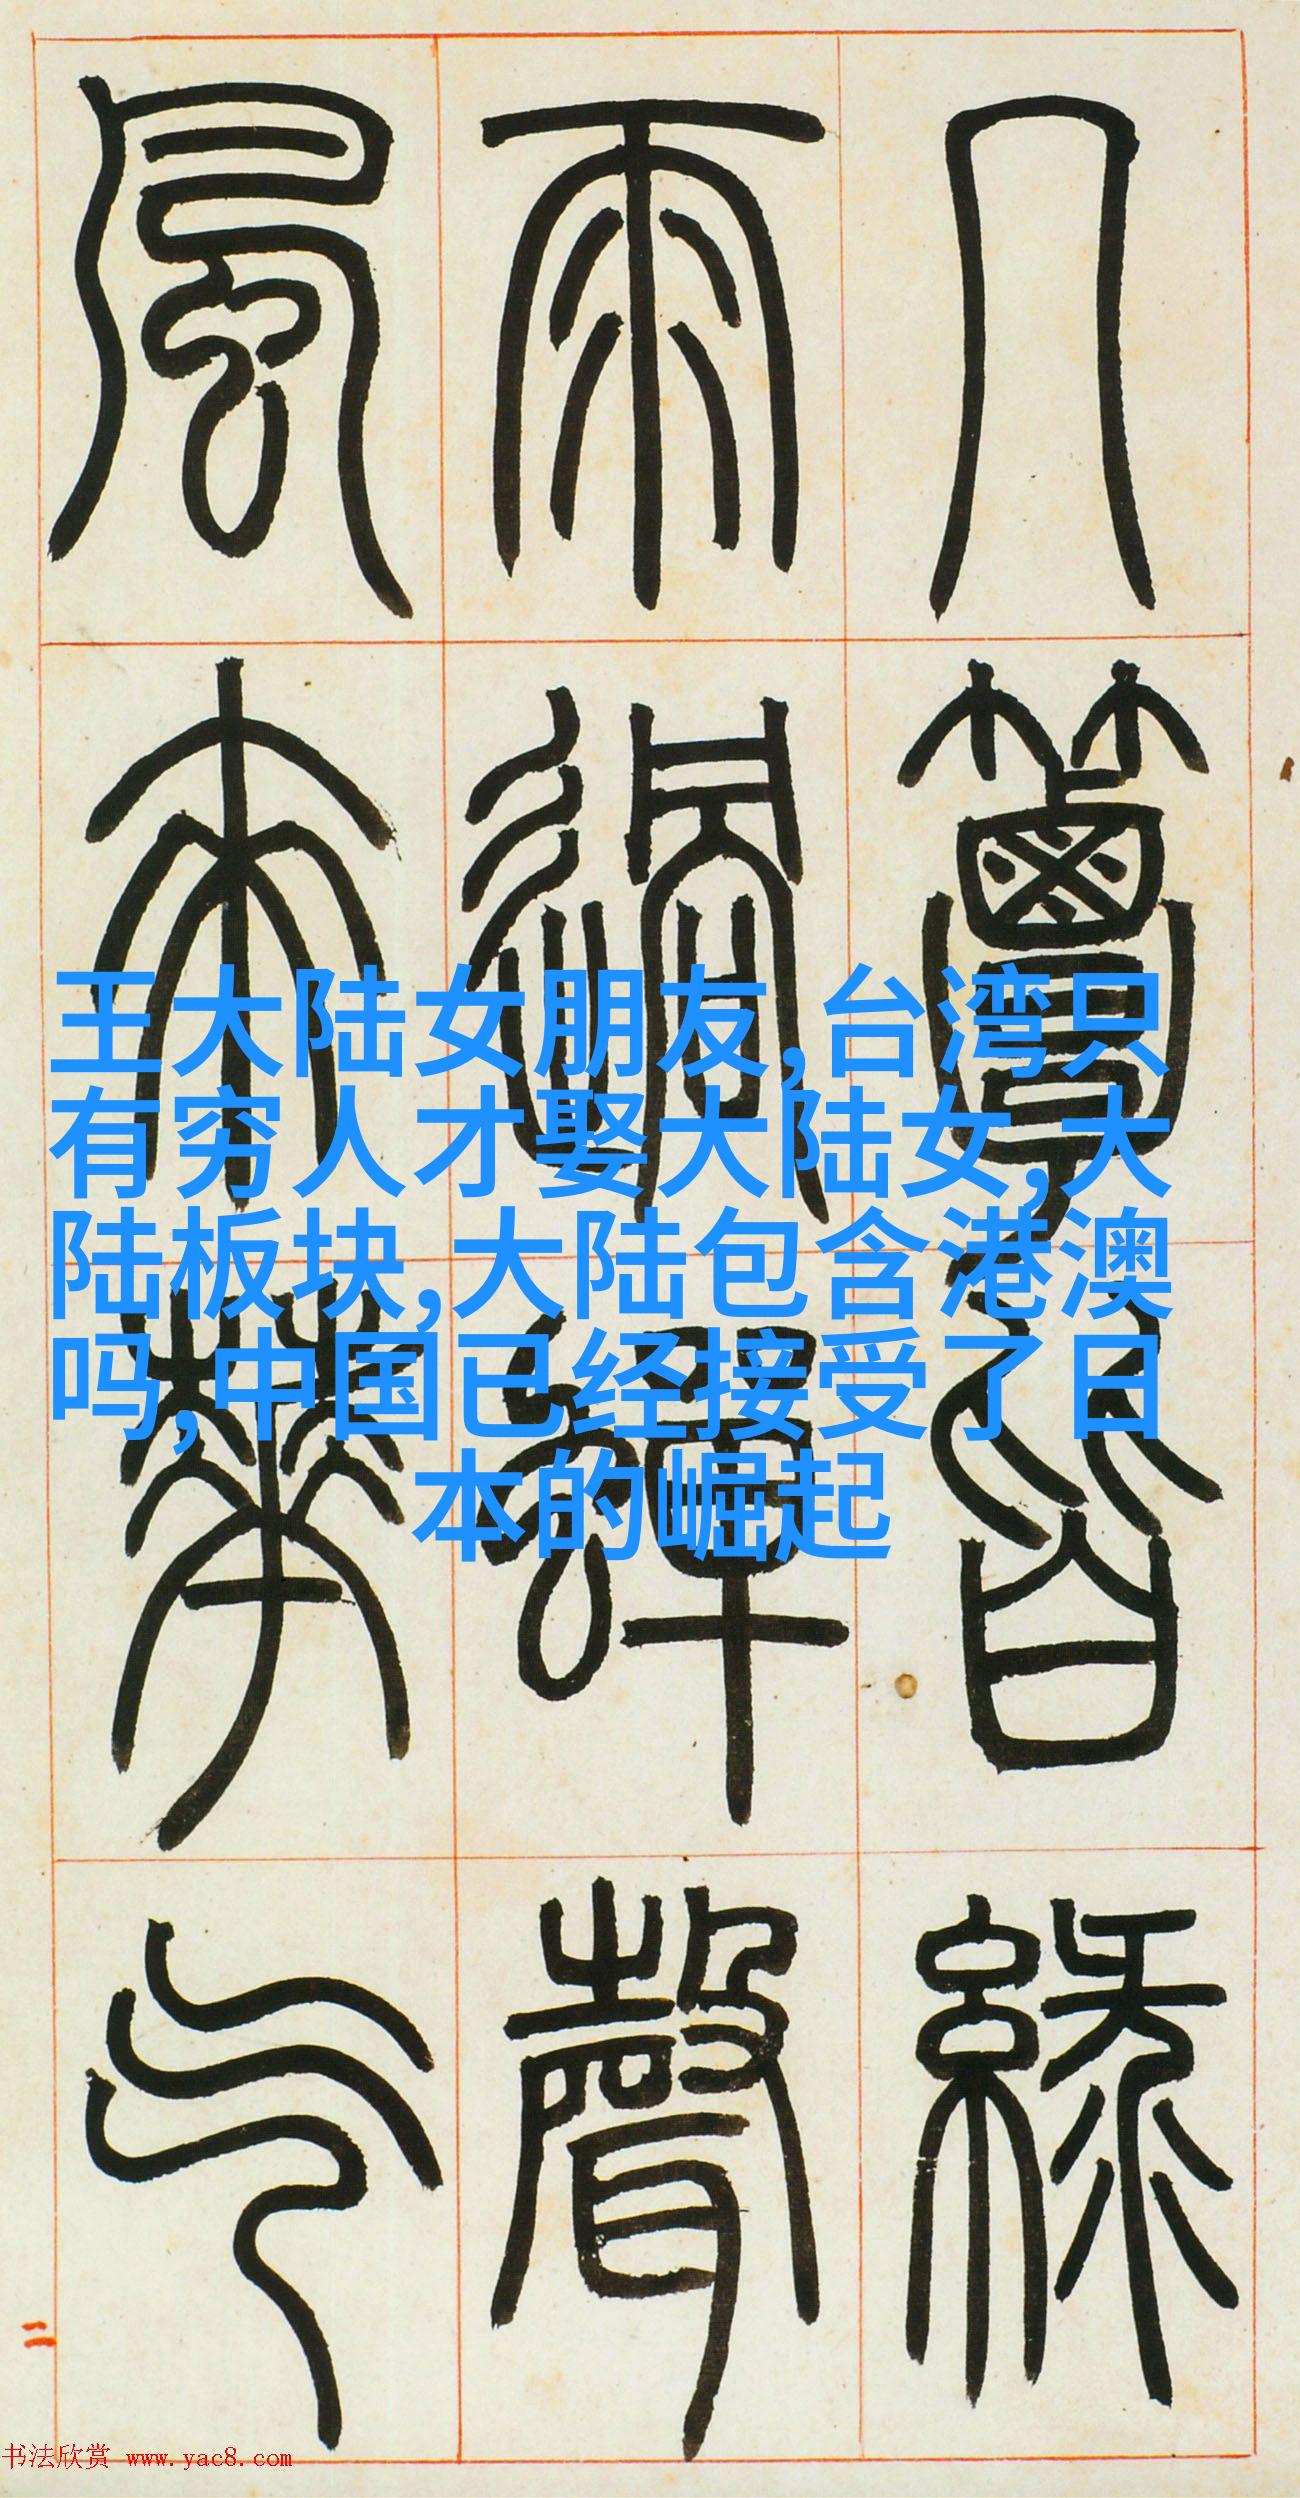 几簟皆綠
雨過蟬聲
風來華气
王大陆女朋友,台湾只
有穷人才娶大陆女,大
陆板块,大陆包含港澳
吗,中国已经接受了日
本的崛起
二
书法欣赏 www.yac8.com